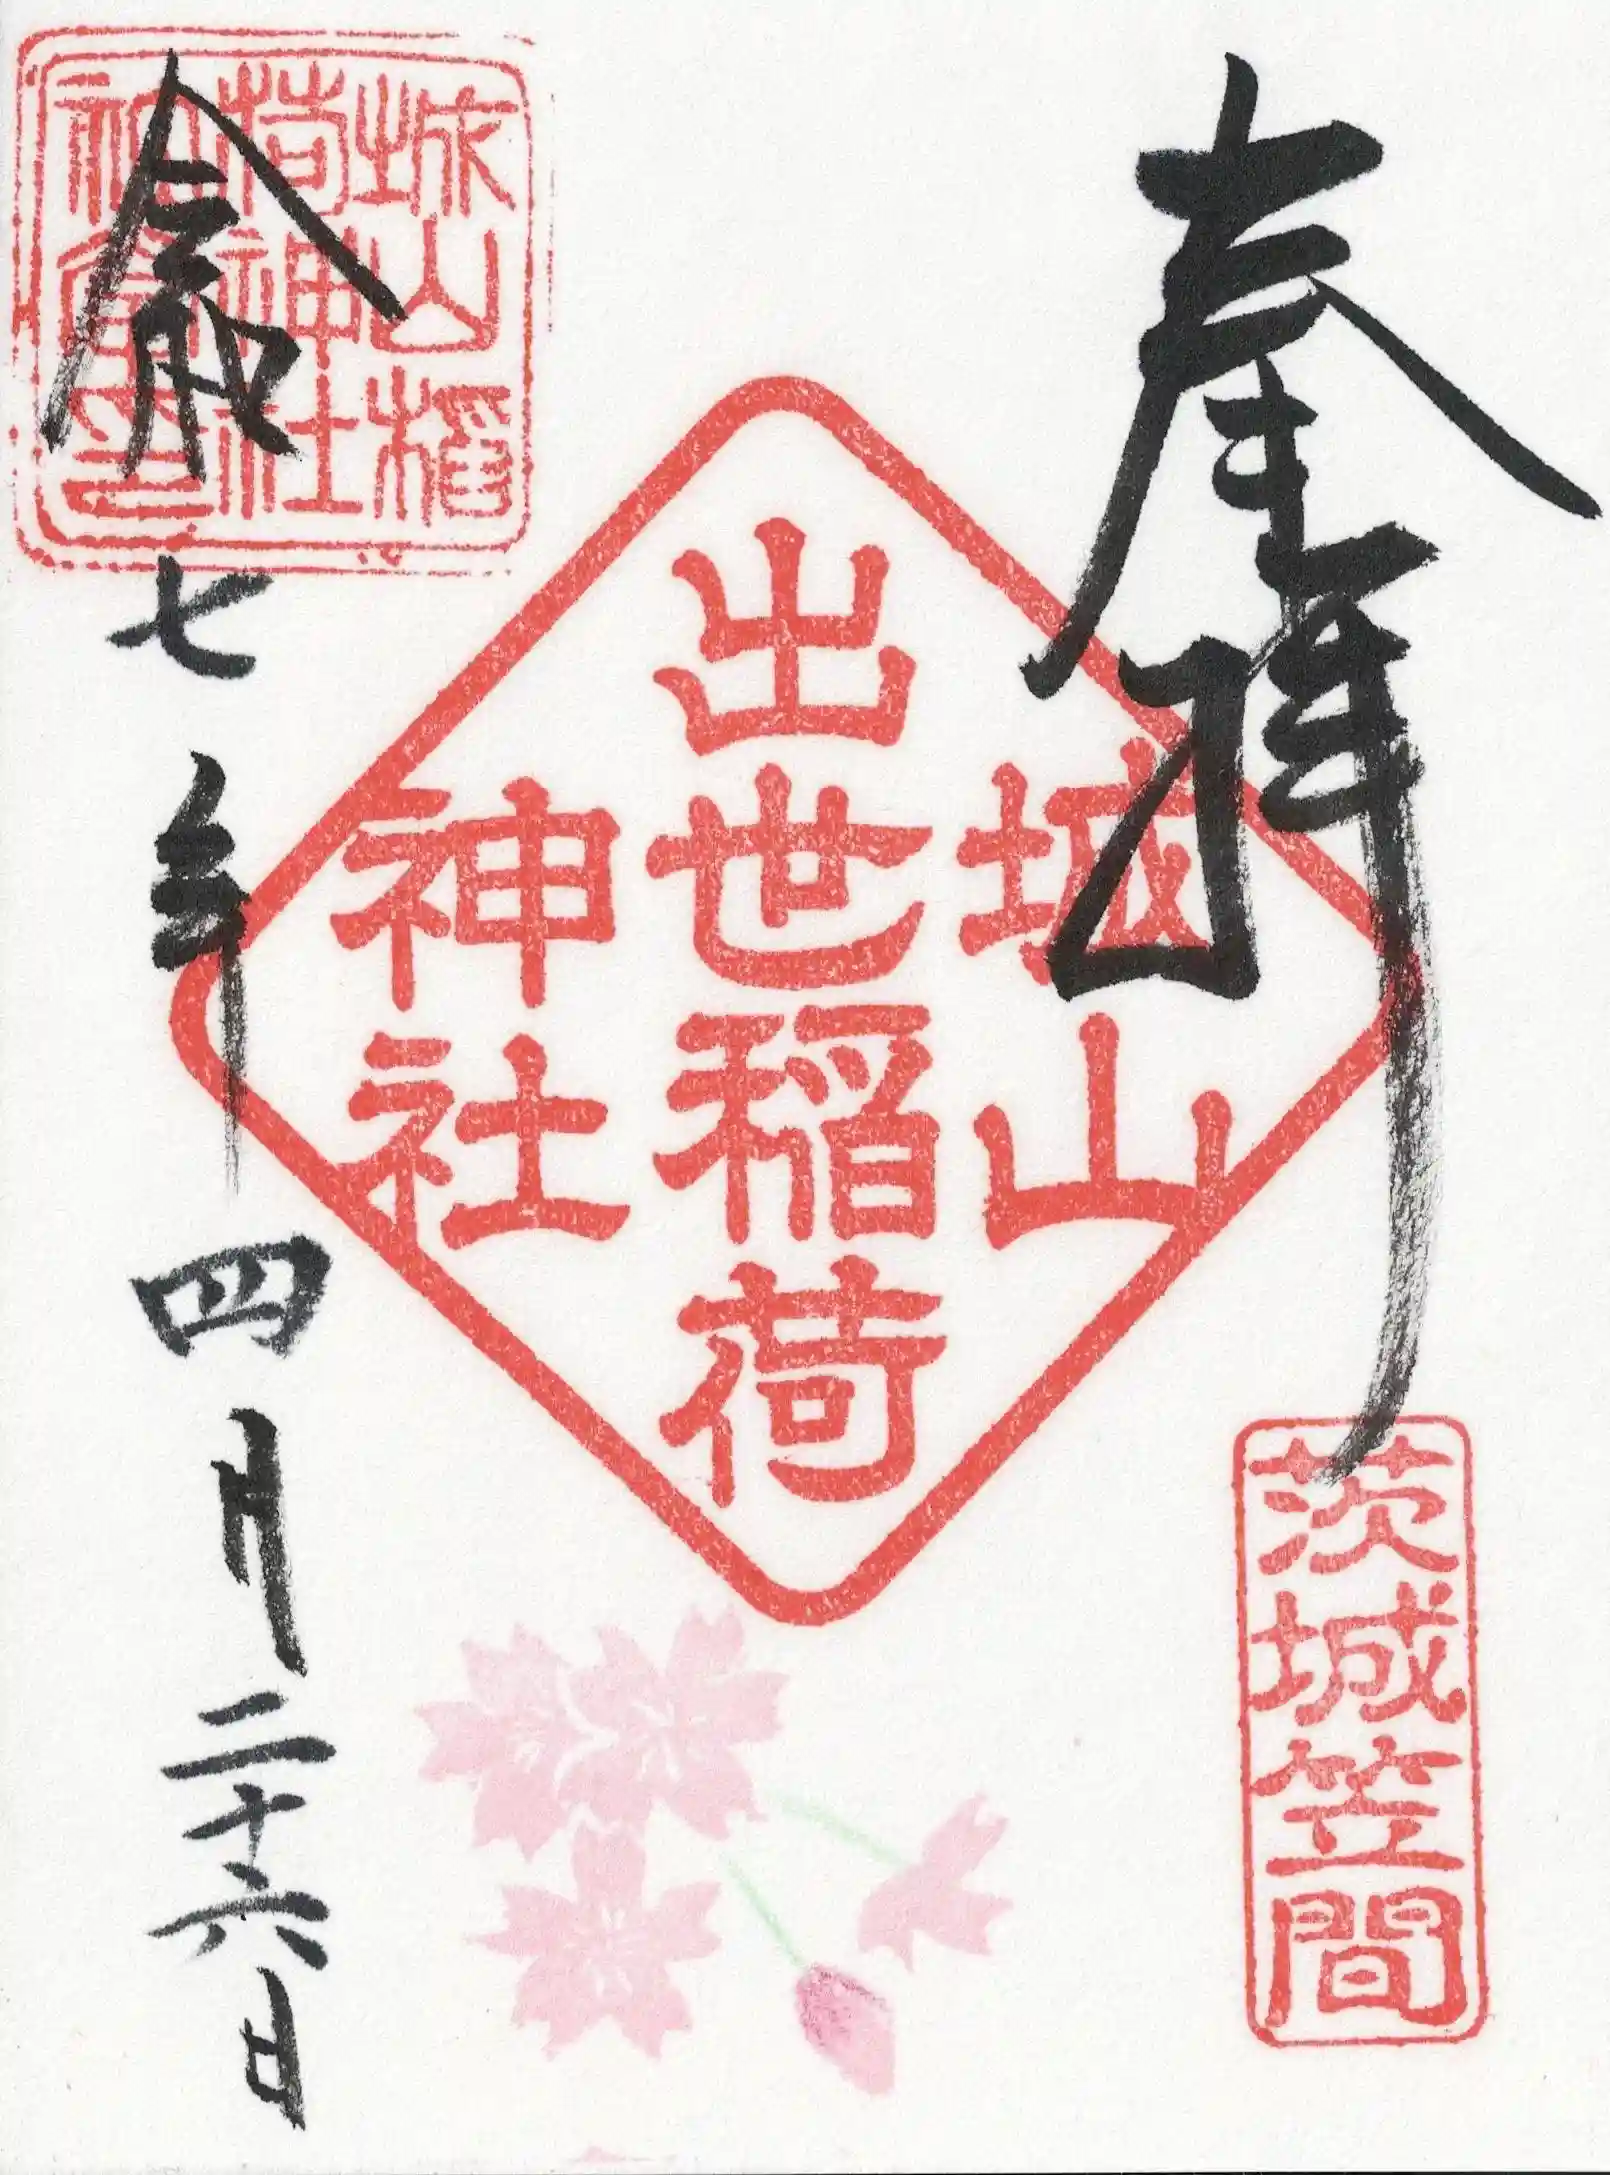 奉拝
茨城笠間
城山
出世稲荷
神社
城山稲
荷神社
令和七年四月二十六日